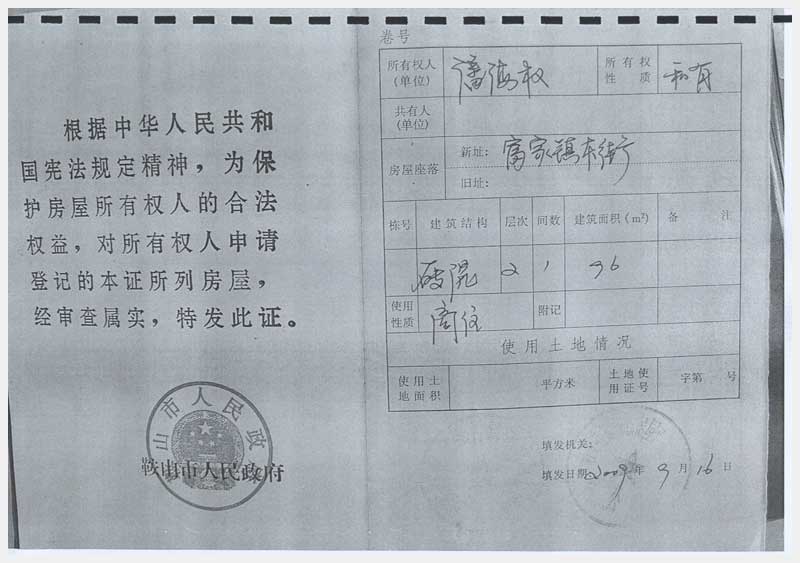 根据中华人民共和
国宪法规定精神，为保
护房屋所有权人的合法
权益，对所有权人申请
登记的本证所列房屋，
经审查属实，特发此证。
山市人民政
鞍山市人民政府
卷号
所有权人
(单位)
潘海权
所有权
性质
私有
共有人
(单位)
房屋座落
新址：富家镇东街
旧址：
栋号 建筑结构 层次 间数 建筑面积(m²) 备注
砖混 2 1 96
使用
性质
商住
附记
使用土地情况
使用土
地面积
平方米
土地使
用证号
字第 号
填发机关：
填发日期2009年9月16日